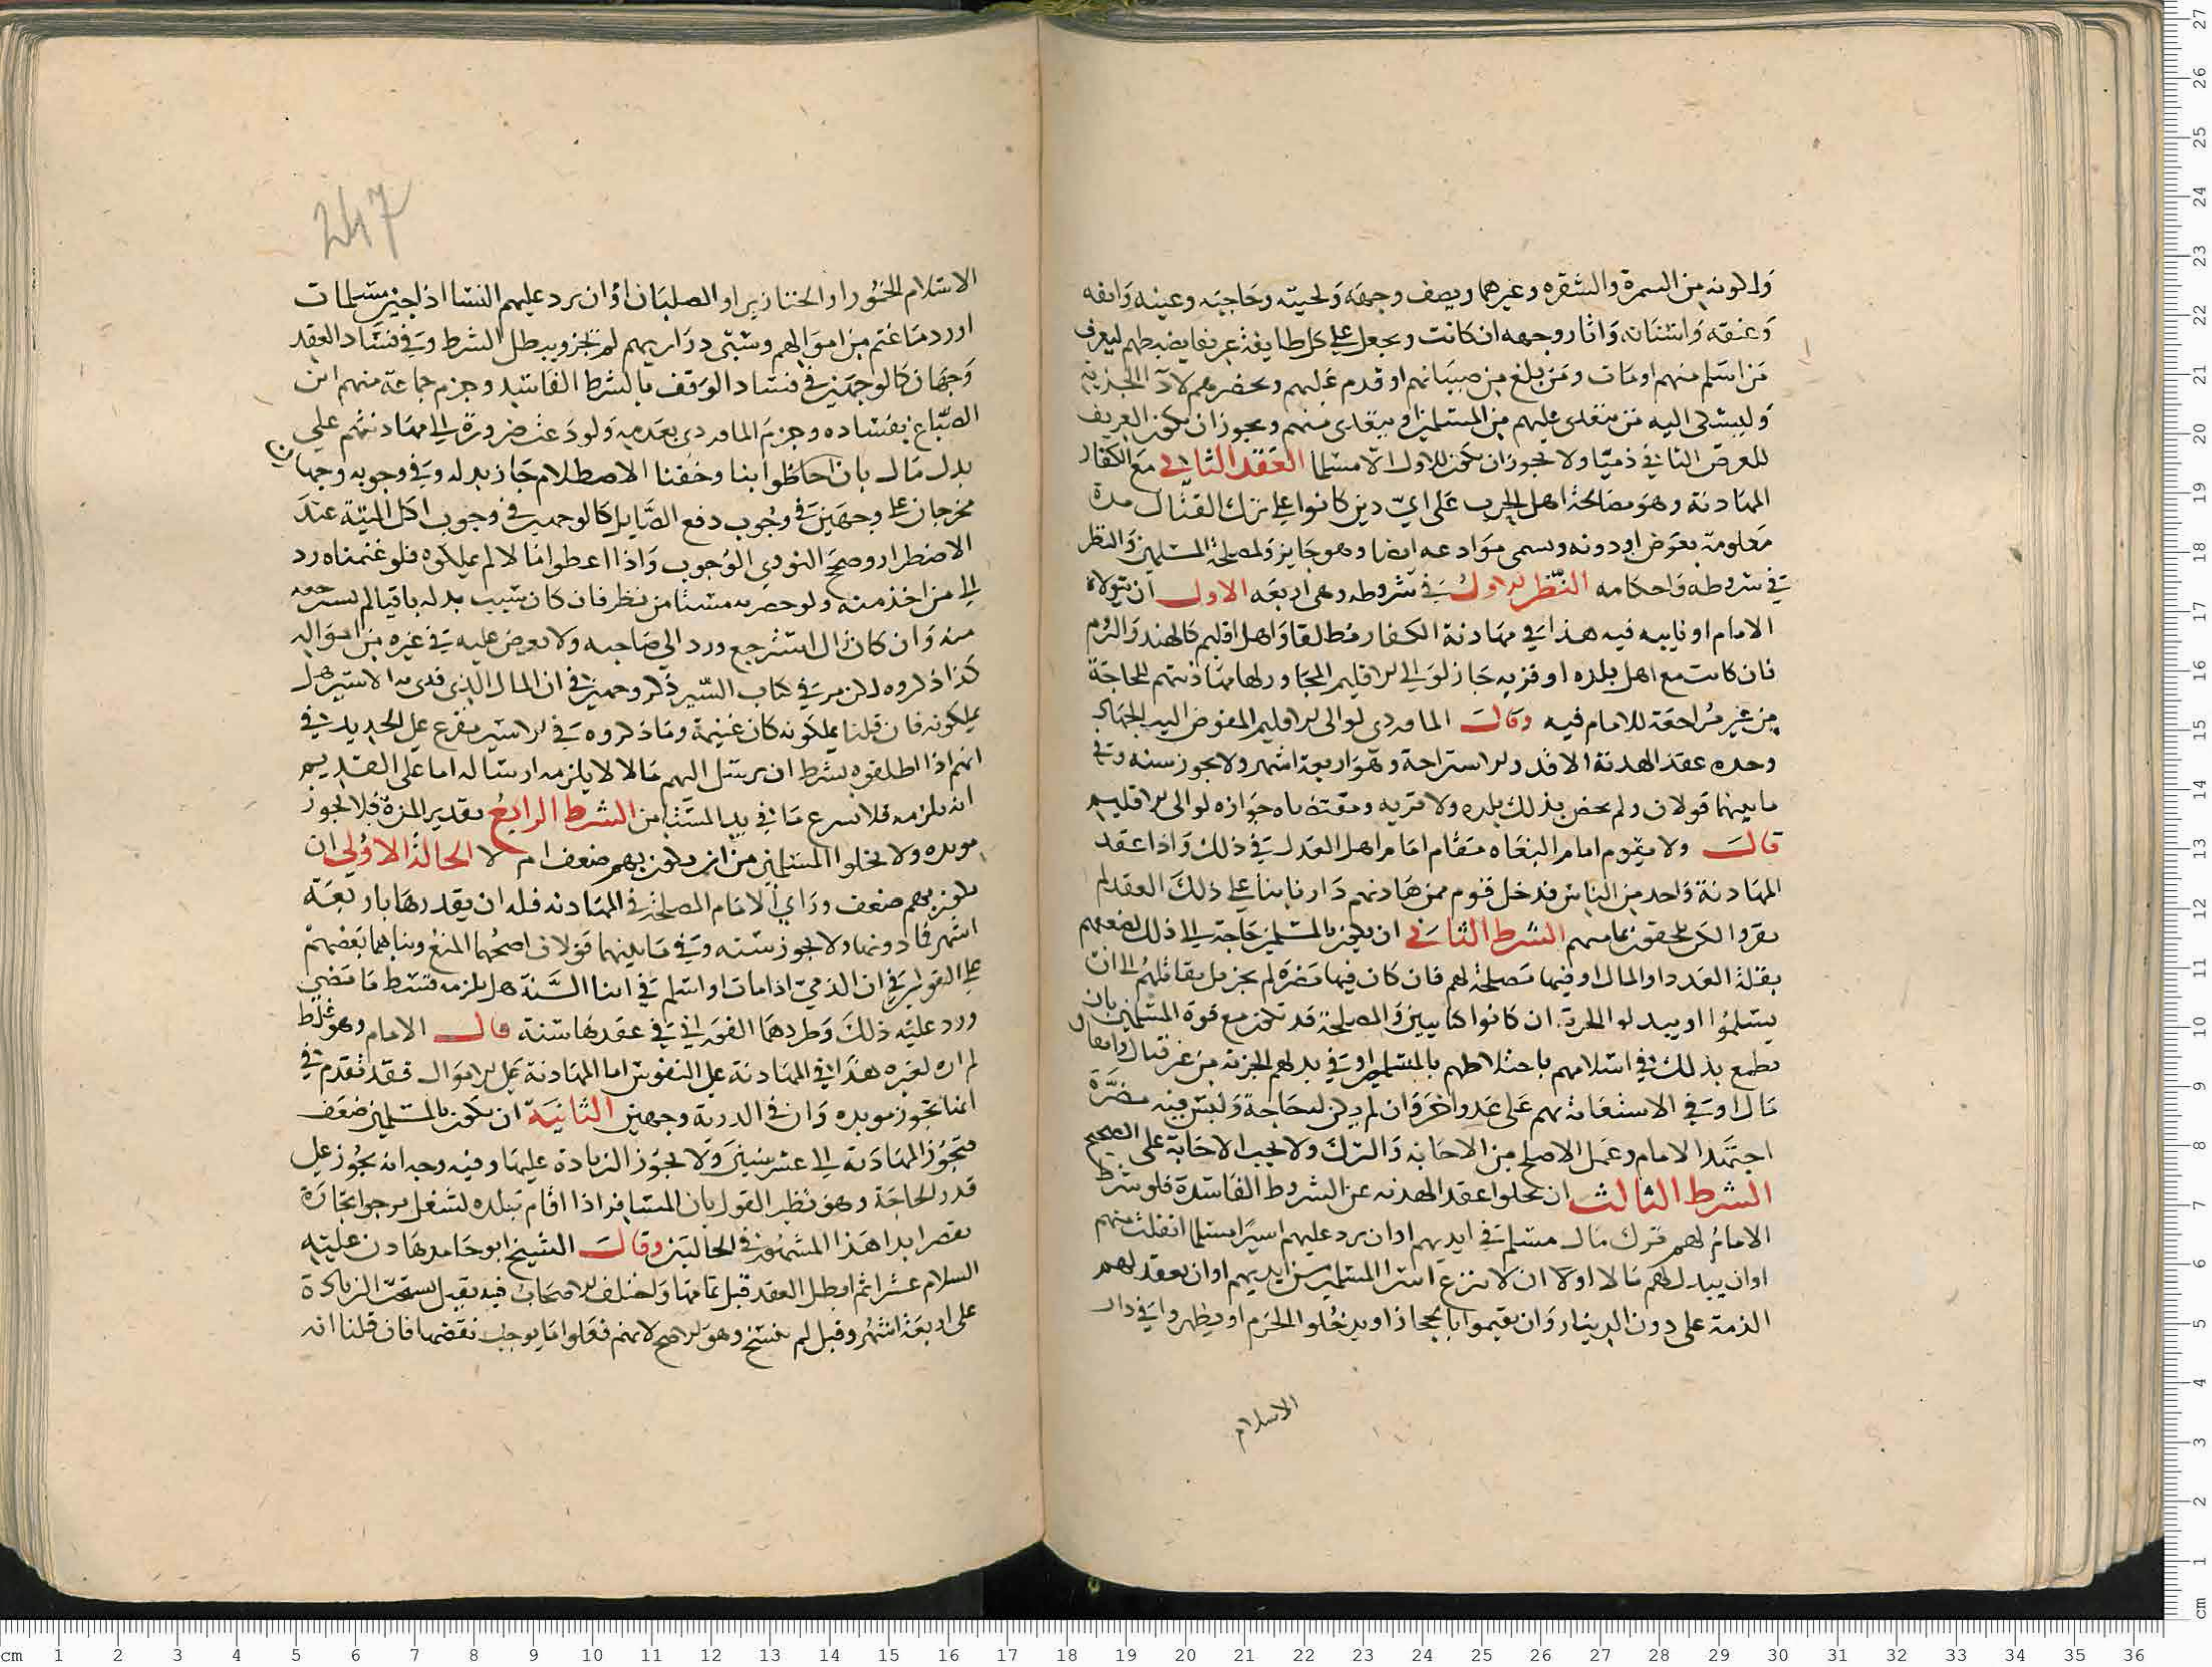 ولكونه من السمرة والشقره وغيرهما ويصف وجهه ولحيته وحاجبيه وعينيه وانفه
وعنقه واسنانه واثار وجهه ان كانت ويجعل على كل طايفة عريفا يضبطهم ليعرف
من اسلم منهم او مات ومن بلغ من صبيانهم او قدم عليهم ويحضرهم لادآ الجزية
وليشتكى اليه من يتعدى عليهم من المسلمين او يتعدى منهم ويجوز ان يكون العريف
للعرض الثاني ذميا ولا يجوز ان يكون للاول الا مسلما العقد الثاني مع الكفار
المهادنة وهو مصالحة اهل الحرب على اي دين كانوا على ترك القتال مدة
معلومة بعوض او دونه ويسمى موادعه ايضا وهو جايز لمصلحة المسلمين والنظر
في شروطه واحكامه النظر الاول في شروطه وهي اربعه الاول ان يتولاه
الامام او نايبه فيه هذا في مهادنة الكفار مطلقا واهل اقليم كالهند والروم
فان كانت مع اهل بلده او قريه جاز لوالي الاقليم المجاور لها مهادنتهم للحاجة
من غير مراجعة للامام فيه وقال الماوردي لوالى الاقليم المفوض اليه الجهاد
وحده عقد الهدنة الا قدر الاستراحة وهو اربعة اشهر ولا يجوز سنه وفي
ما بينهما قولان ولم يخص بذلك بلده ولا قريه ومقتضاه جوازه لوالى الاقليم
قال ولا يقوم امام البغاه مقام امام اهل العدل في ذلك واذا عقد
المهادنة واحد من الناس فدخل قوم ممن هادنهم دارنا بناء على ذلك العقد لم
يقروا لكن يلحقون بمامنهم الشرط الثاني ان يكون بالمسلمين حاجة الى ذلك لضعفهم
بقلة العدد او المال او فيها مصلحة لهم فان كان فيها مضره لم يجز بل يقاتلهم الى ان
يسلموا او يبدلوا الجزية ان كانوا كتابيين والمصلحة قد تكون مع قوة المسلمين بان
يطمع بذلك في اسلامهم باختلاطهم بالمسلمين او في بدلهم الجزية من غير قتال وانفاق
مال او في الاستعانة بهم على عدو اخر وان لم يكن لحاجة وليس فيه مضرة
اجتهد الامام وعمل الاصلح من الاجابه والترك ولا يجب الاجابة على الصحيح
الشرط الثالث ان يخلوا عقد الهدنه عن الشروط الفاسدة فلو شرط
الامام لهم ترك مال مسلم في ايديهم او ان يرد عليهم اسيرا مسلما انفلت منهم
او ان يبدل لهم مالا اولا ان لا ننزع اسرا المسلمين من ايديهم او ان يعقد لهم
الذمة على دون الدينار وان يقيموا بالحجاز او يدخلوا الحرم او يظهروا في دار
الاسلام
247
الاسلام الخمور او الخنازير او الصلبان او ان يرد عليهم النسا اذا جئن مسلمات
او رد ما غنم من اموالهم وسبي ذراريهم لم يجز ويبطل الشرط وفي فساد العقد
وجهان كالوجهين في فساد الوقف بالشرط الفاسد وجزم جماعة منهم ابن
الصباغ بفساده وجزم الماوردي بعدمه ولو دعت ضرورة الى مهادنتهم على
بدل مال بان احاطوا بنا وخفنا الاصطلام جاز بدله وفي وجوبه وجهان
مخرجان على وجهين في وجوب دفع الصايل كالوجهين في وجوب اكل الميتة عند
الاضطرار وصحح النووي الوجوب واذا اعطوا مالا لم يملكوه فلو غنمناه رد
الى من اخذ منه ولو حضر نظر فان كان بدله باقيا لم
منه وان كان استرجع ورد الى صاحبه ولا يعوض عليه في غيره من امواله
كذا ذكروه لكن مر في كتاب السير ذكر وجهين في ان المال الذي فدى به الاسير هل
يملكونه فان قلنا يملكونه كان غنيمة وما ذكروه في الاسير مفرع على الجديد في
انهم اذا اطلقوه بشرط ان يرسل اليهم مالا لا يلزمه ارساله اما على القديم
انه يلزمه فلا ينزع ما في يد الشرط الرابع تقدير المدة فلا يجوز
موبده ولا يخلوا المسلمين من ان يكون بهم ضعف ام لا الحالة الاولى ان
يكون بهم ضعف وراي الامام المصلحة في المهادنه فله ان يقدرها باربعة
اشهر فما دونها ولا يجوز سنه وفي ما بينهما قولان اصحهما المنع وبناهما بعضهم
على القولين في ان الذمي اذا مات او اسلم في اثنا السنة هل يلزمه قسط ما مضى
ورد عليه ذلك وطردهما الفوراني في عقدها سنة قال الامام وهو غلط
لم اره لغيره هذا في المهادنة على النفوس اما المهادنة على الاموال فقد تقدم في
انها تجوز موبده وان في الذرية وجهين الثانية ان يكون بالمسلمين ضعف
فتجوز المهادنة الى عشر سنين ولا يجوز الزيادة عليها وفيه وجه انه يجوز على
قدر الحاجة وهو نظير القول بان المسافر اذا اقام ببلده لشغل يرجوا نجازه
يقصر ابدا هذا المشهور في الحالتين وقال الشيخ ابو حامد هادن عليه
السلام عشرا ثم ابطل العقد قبل تمامها واختلف الاصحاب فيه فقيل نسخت الزيادة
على اربعة اشهر وقيل لم ينسخ وهو الاصح لانهم فعلوا ما يوجب نقضها فان قلنا انه